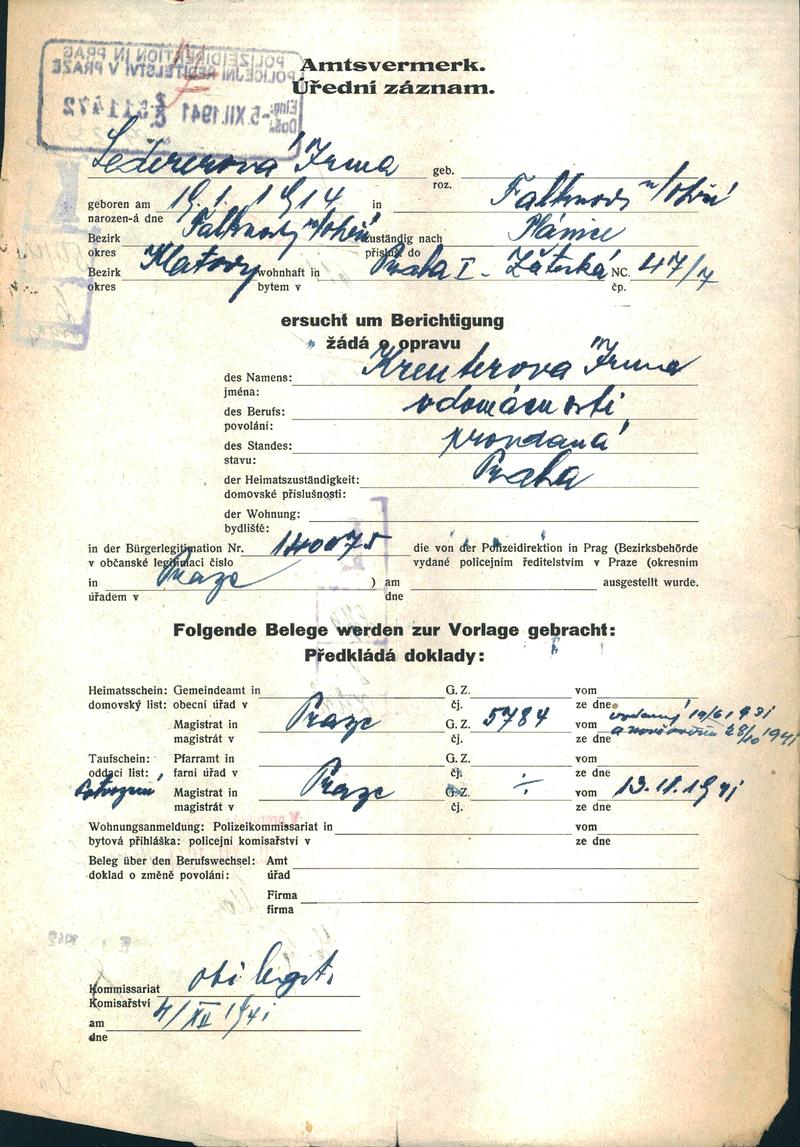 POLIZEIDIREKTION IN PRAG
POLICEJNÍ ŘEDITELSTVÍ V PRAZE
-5.XII.1941
Amtsvermerk.
Úřední záznam.
Ledererová Irma geb.
roz.
geboren am 19.1.1914 in Falknov n/Ohří
narozen-á dne
Bezirk Falknov n/Ohří zuständig nach Plánice
okres přísluš. do
Bezirk Klatovy wohnhaft in Praha I - Žatecká NC. 47/7
okres bytem v čp.
ersucht um Berichtigung
žádá o opravu
des Namens: Kreuterová Irma
jména:
des Berufs: v domácnosti
povolání:
des Standes: provdaná
stavu:
der Heimatszuständigkeit: Praha
domovské příslušnosti:
der Wohnung:
bydliště:
in der Bürgerlegitimation Nr. die von der Polizeidirektion in Prag (Bezirksbehörde
v občanské legitimaci číslo vydané policejním ředitelstvím v Praze (okresním
in Praze ) am ausgestellt wurde.
úřadem v dne
Folgende Belege werden zur Vorlage gebracht:
Předkládá doklady:
Heimatsschein: Gemeindeamt in G. Z. vom
domovský list: obecní úřad v čj. ze dne
Magistrat in Praze G. Z. 5784 vom
magistrát v čj. ze dne
Taufschein: Pfarramt in G. Z. vom
oddací list: farní úřad v čj. ze dne
Potvrzení Magistrat in Praze G. Z. ÷ vom 13.11.1941
magistrát v čj. ze dne
Wohnungsanmeldung: Polizeikommissariat in vom
bytová přihláška: policejní komisařství v ze dne
Beleg über den Berufswechsel: Amt
doklad o změně povolání: úřad
Firma
firma
Kommissariat obč legit.
Komisařství
am 4/XII 1941
dne